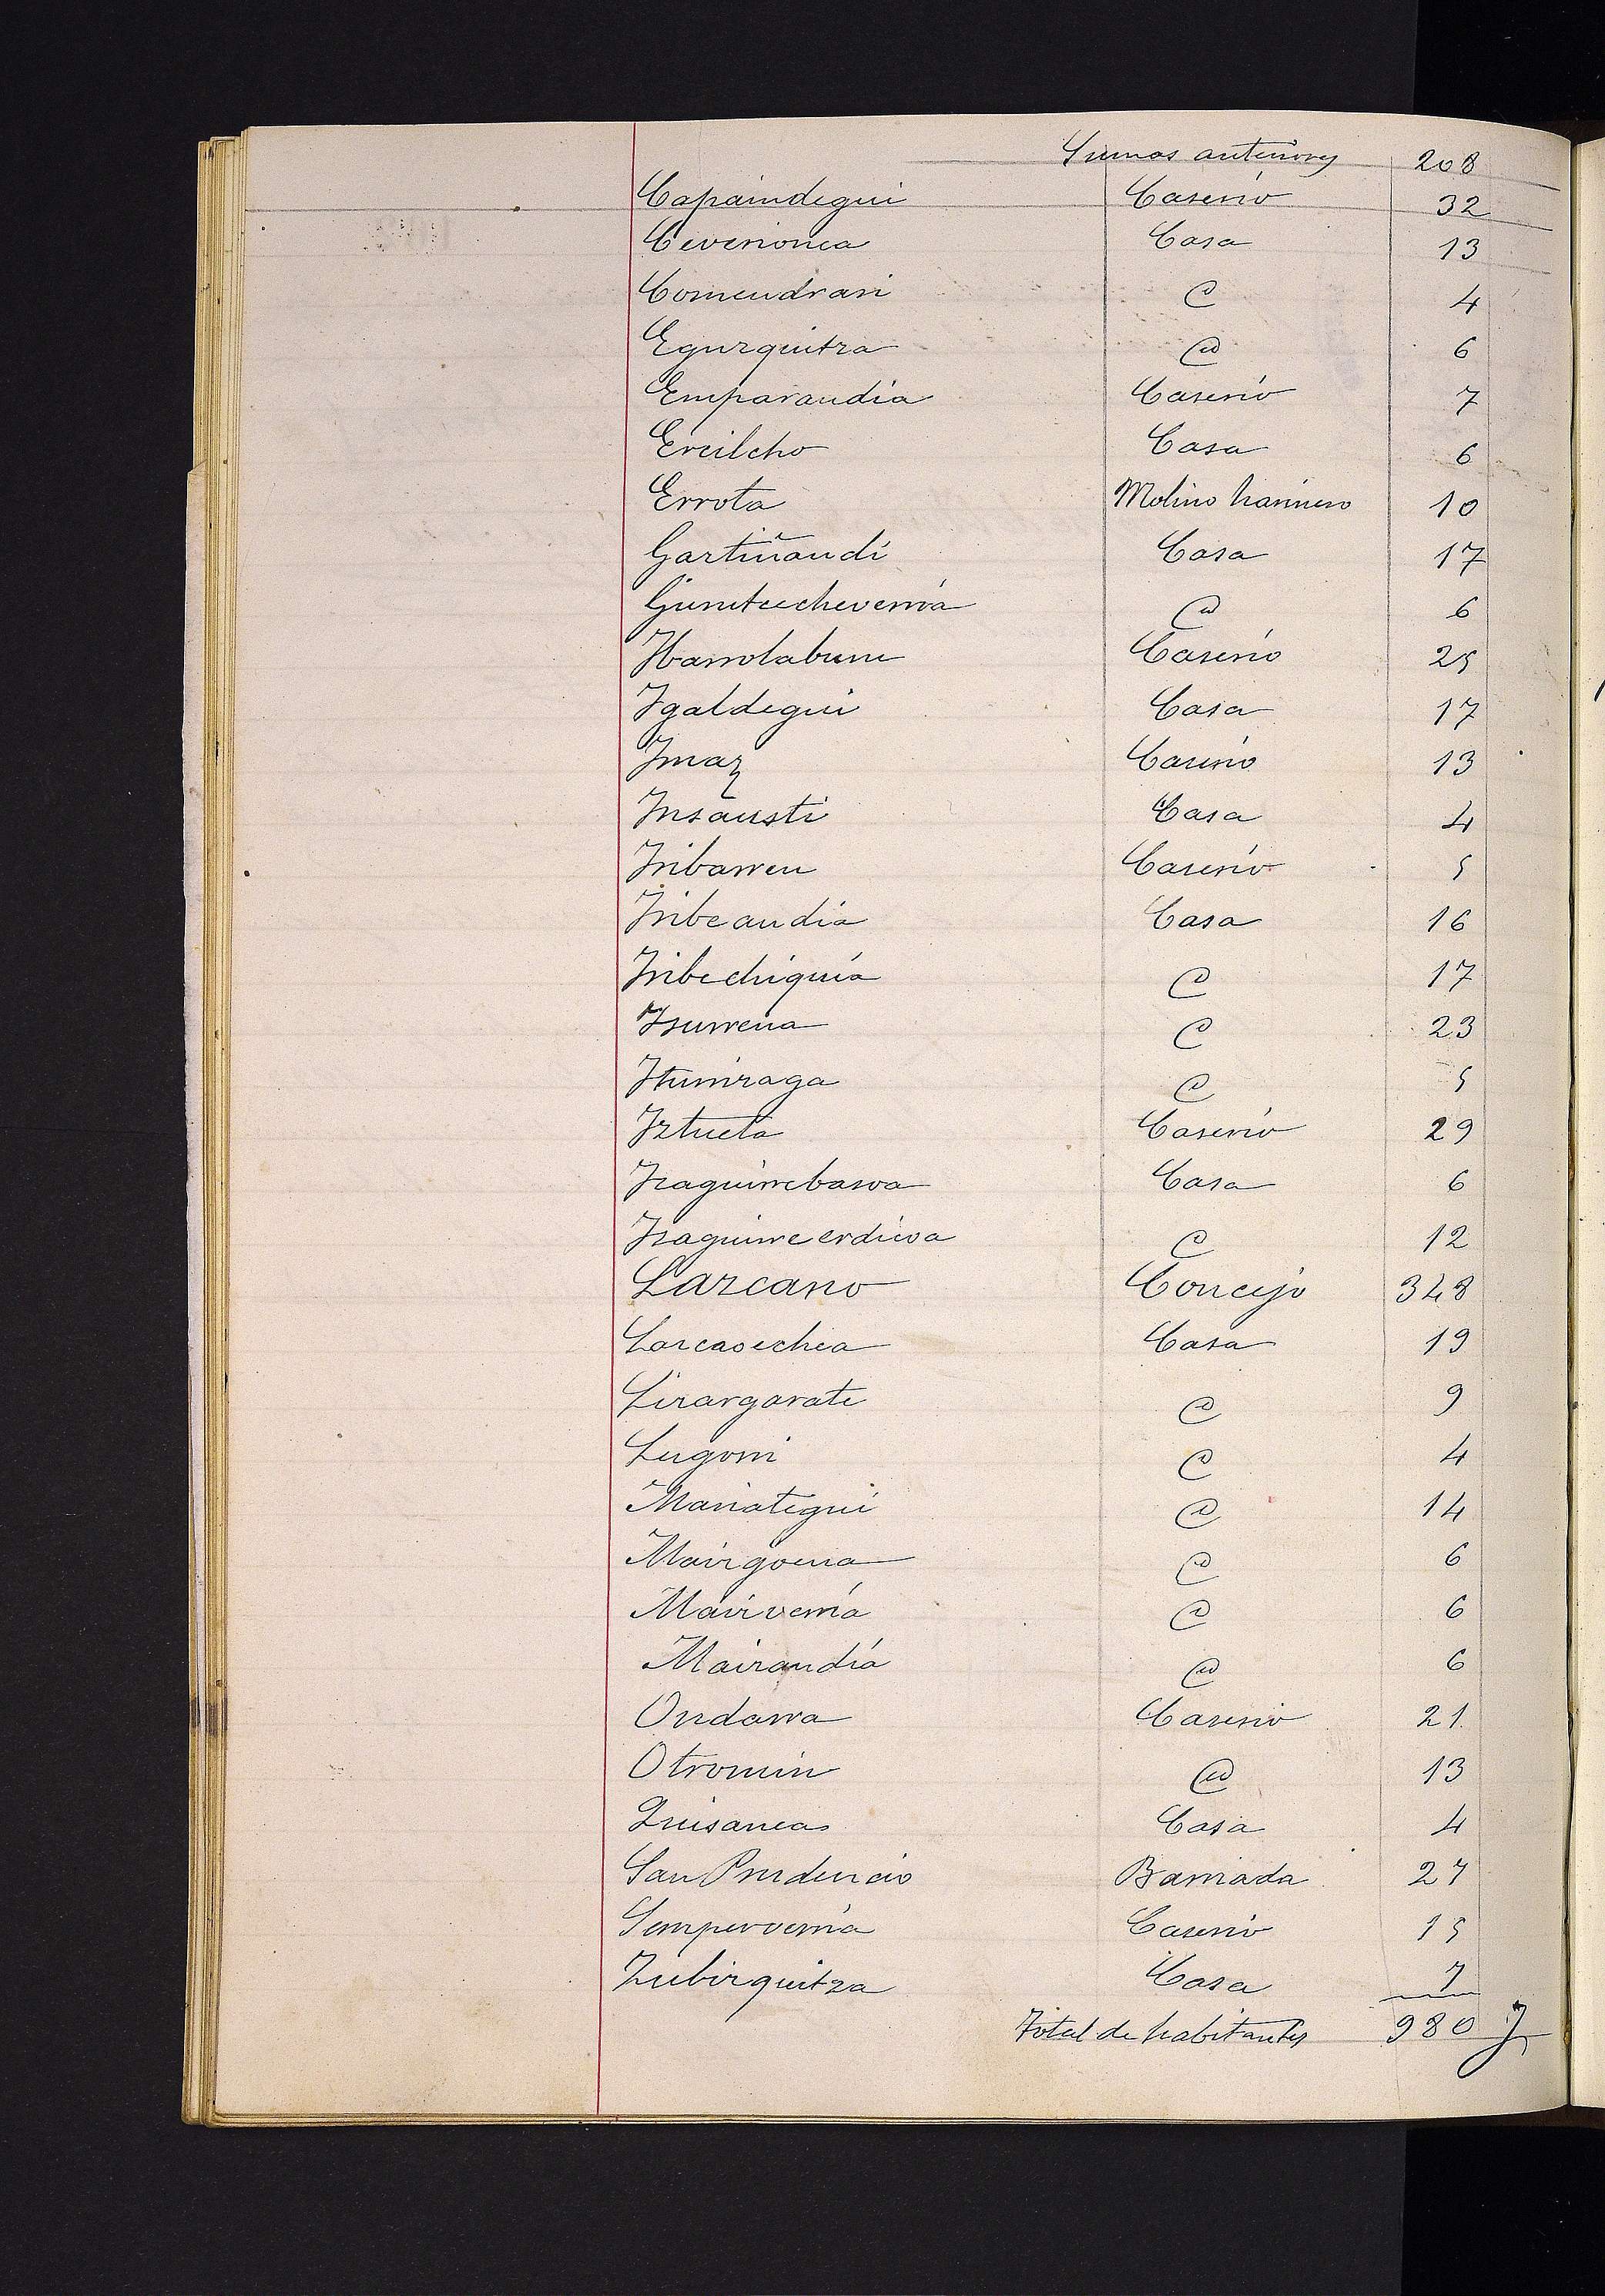 Sumas anteriores 208
Capaindegui Caserio 32
Ceverionea Casa 13
Comendrari @ 4
Egurquitza @ 6
Emparandia Caserio 7
Ercilcho Casa 6
Errota Molino harinero 10
Gartiñandi Casa 17
Gurutzecheverria @ 6
Ibarrolaburu Caserio 25
Igaldegui Casa 17
Imaz Caserio 13
Insausti Casa 4
Iribarren Caserio 5
Iribeandia Casa 16
Iribechiquia @ 17
Isurrena @ 23
Iturriraga @ 5
Iztueta Caserio 29
Izaguirrebasoa Casa 6
Izaguirre erdicoa @ 12
Lazcano Concejo 348
Lazcaoechea Casa 19
Lizargarate @ 9
Lugorri @ 4
Mariategui @ 14
Maizgoena @ 6
Maizverria @ 6
Maizandia @ 6
Ondarra Caserio 21
Otromin @ 13
Quisanea Casa 4
San Prudencio Barriada 27
Semperverria Caserio 15
Zubizquitza Casa 7
Total de habitantes 980